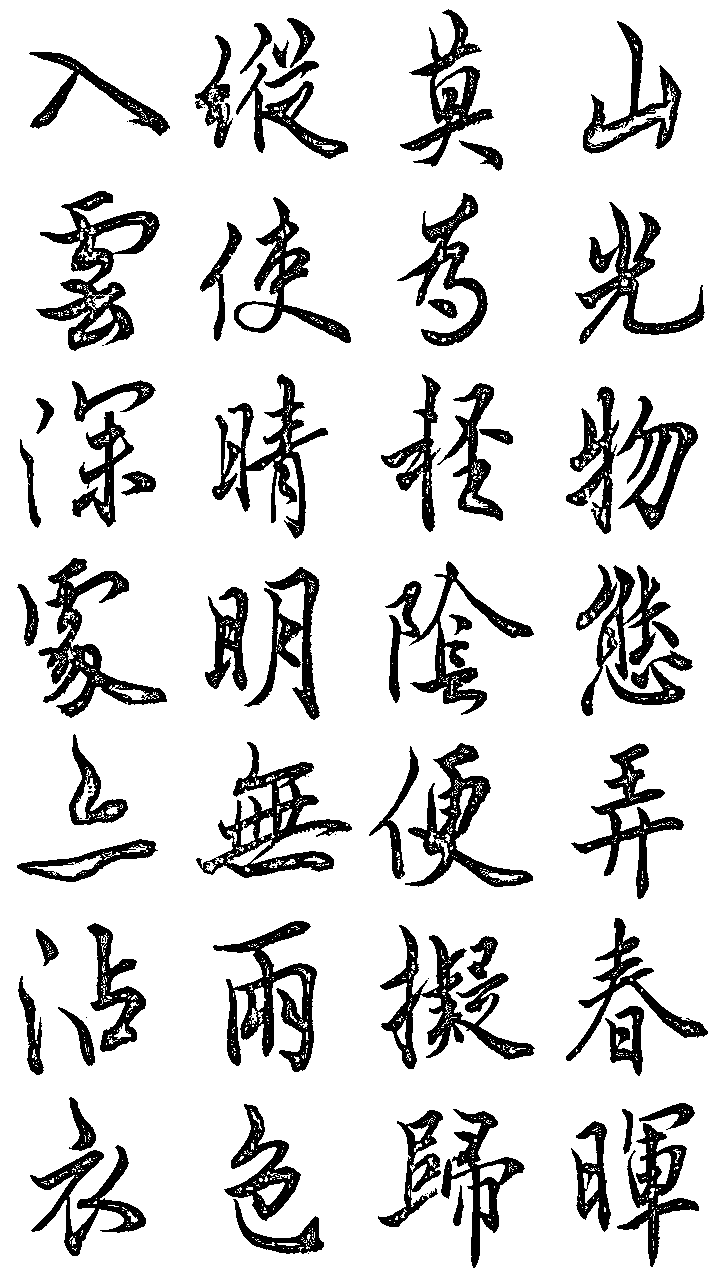 山光物態弄春暉
莫為輕陰便擬歸
縱使晴明無雨色
入雲深處上沾衣